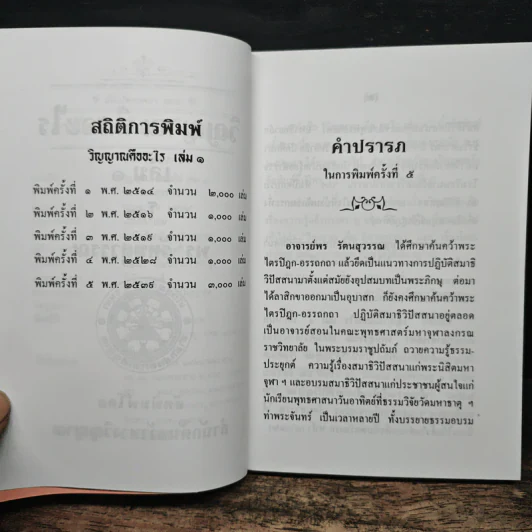 สถิติการพิมพ์
วิญญาณคืออะไร เล่ม ๑
พิมพ์ครั้งที่ ๑ พ.ศ. ๒๕๑๔ จำนวน ๒,๐๐๐ เล่ม
พิมพ์ครั้งที่ ๒ พ.ศ. ๒๕๑๖ จำนวน ๑,๐๐๐ เล่ม
พิมพ์ครั้งที่ ๓ พ.ศ. ๒๕๑๙ จำนวน ๑,๐๐๐ เล่ม
พิมพ์ครั้งที่ ๔ พ.ศ. ๒๕๒๘ จำนวน ๑,๐๐๐ เล่ม
พิมพ์ครั้งที่ ๕ พ.ศ. ๒๕๓๙ จำนวน ๓,๐๐๐ เล่ม
คำปรารภ
ในการพิมพ์ครั้งที่ ๕
อาจารย์พร รัตนสุวรรณ ได้ศึกษาค้นคว้าพระ
ไตรปิฎก-อรรถกถา แล้วยึดเป็นแนวทางการปฏิบัติสมาธิ
วิปัสสนามาตั้งแต่สมัยยังอุปสมบทเป็นพระภิกษุ ต่อมา
ได้ลาสิกขาออกมาเป็นอุบาสก ก็ยังคงศึกษาค้นคว้าพระ
ไตรปิฎก-อรรถกถา ปฏิบัติสมาธิวิปัสสนาอยู่ตลอด
เป็นอาจารย์สอนในคณะพุทธศาสตร์มหาจุฬาลงกรณ
ราชวิทยาลัย ในพระบรมราชูปถัมภ์ ถวายความรู้ธรรม-
ประยุกต์ ความรู้เรื่องสมาธิวิปัสสนาแก่พระนิสิตมหา
จุฬา ฯ และอบรมสมาธิวิปัสสนาแก่ประชาชนผู้สนใจแก่
นักเรียนพุทธศาสนาวันอาทิตย์ที่ธรรมวิจัยวัดมหาธาตุ ฯ
ท่าพระจันทร์ เป็นเวลาหลายปี ทั้งบรรยายธรรมอบรม